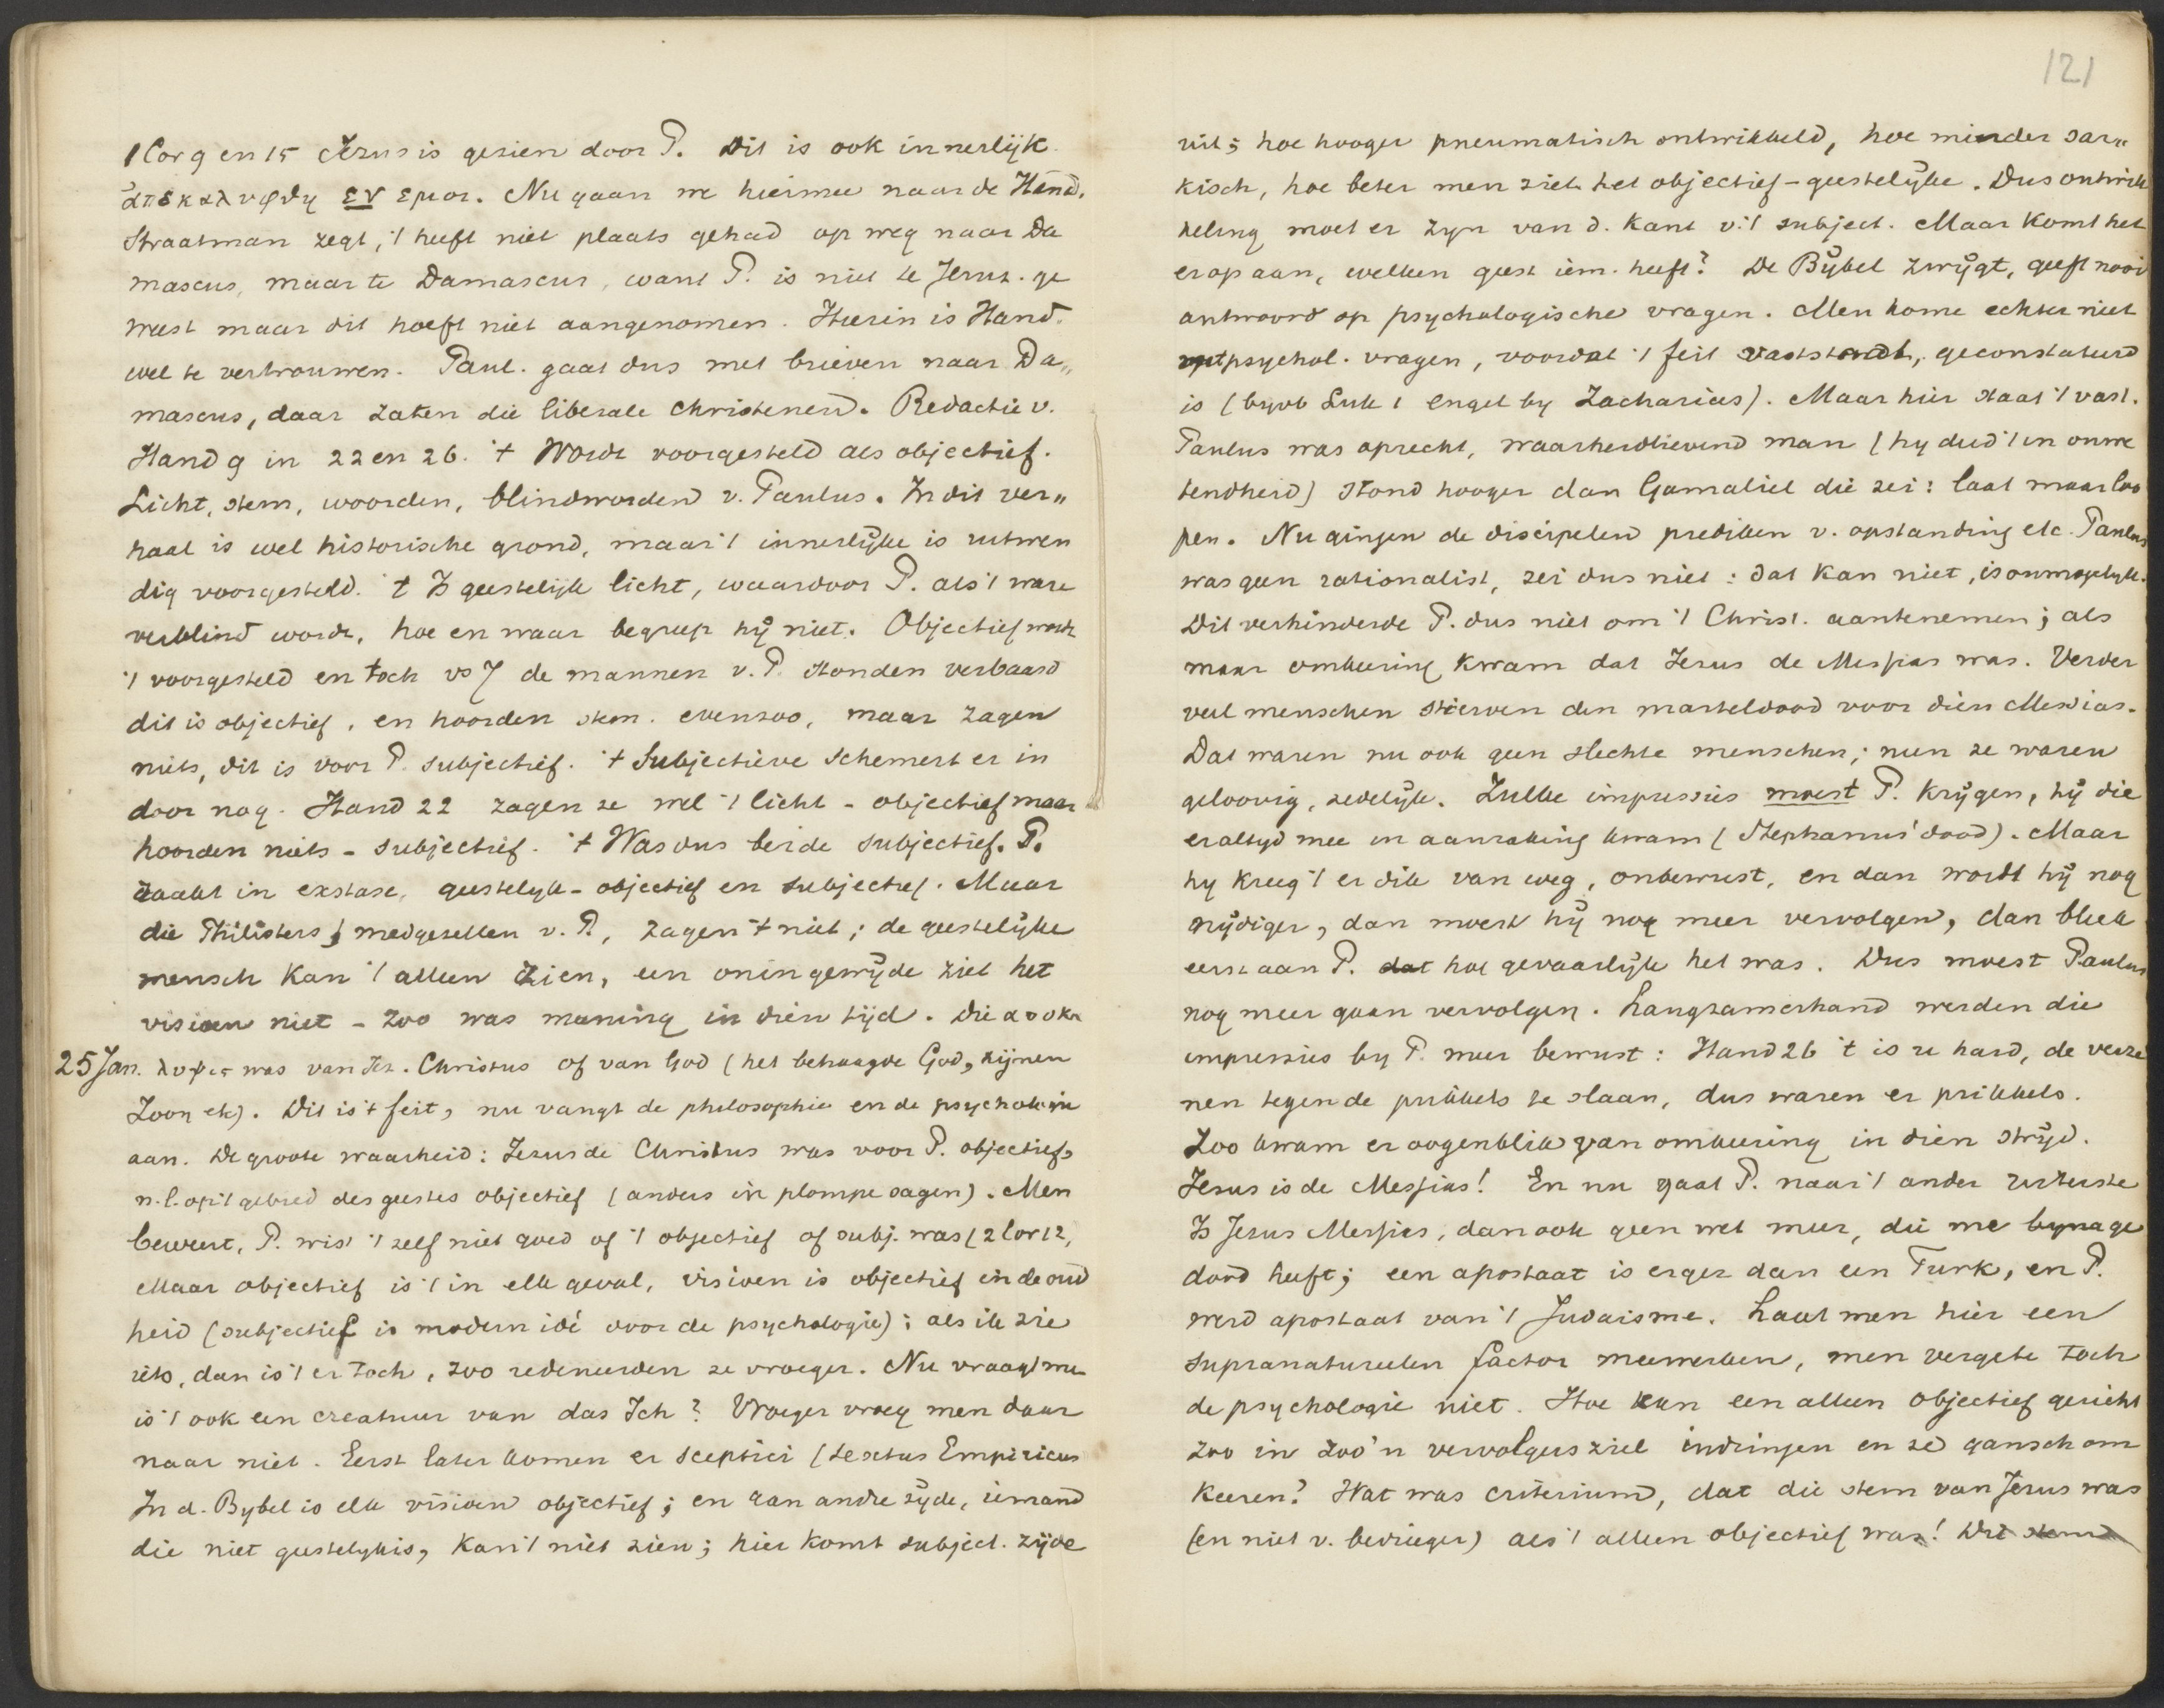 1 Cor 9 en 15 Jezus is gezien door P. Dit is ook innerlijk.
ἀπεκαλυφθη εν εμοι. Nu gaan we hiermee naar de Hand.
Straatman zegt, 't heeft niet plaats gehad op weg naar Da
mascus, maar te Damascus, want P. is niet te Jeruz. ge
weest maar dit hoeft niet aangenomen. Hierin is Hand.
wel te vertrouwen. Paul. gaat dus met brieven naar Da„
mascus, daar zaten die liberale Christenen. Redactie v.
Hand 9 in 22 en 26. 't Wordt voorgesteld als objectief.
Licht, stem, woorden, blindworden v. Paulus. In dit ver„
haal is wel historische grond, maar 't innerlijke is uitwen
dig voorgesteld. 't Is geestelijk licht, waardoor P. als 't ware
verblind wordt, hoe en waar begreep hij niet. Objectief wordt
't voorgesteld en toch vs 7 de mannen v. P. stonden verbaasd
dit is objectief, en hoorden stem. evenzoo, maar zagen
niets, dit is voor P. subjectief. 't Subjectieve schemert er in
door nog. Hand 22 zagen ze wel 't licht - objectief maar
hoorden niets - subjectief. 't Was dus beide subjectief. P.
raakt in exstase, geestelyk-objectief en subjectief. Maar
die Philisters, medgezellen v. P., zagen 't niet; de geestelijke
mensch kan 't alleen zien, een oningewijde ziet het
visioen niet - zoo was meening in dien tijd. Die αποκα
25 Jan. λυψις was van Jez. Christus of van God (het behaagde God, zijnen
Zoon etc). Dit is 't feit, nu vangt de philosophie en de psychologie
aan. De groote waarheid: Jezus de Christus was voor P. objectief,
n.l. op 't gebied des geestes objectief (anders in plompe sagen). Men
beweert, P. wist 't zelf niet goed of 't objectief of subj. was (2 Cor 12,
Maar objectief is 't in elk geval, visioen is objectief in de oud
heid (subjectief is modern idé door de psychologie); als ik zie
iets, dan is 't er toch, zoo redeneerden ze vroeger. Nu vraagt men
is 't ook een creatuur van das Ich? Vroeger vroeg men daar
naar niet. Eerst later komen er sceptici (Sextus Empiricus
In d. Bybel is elk visioen objectief; en aan andre zijde, iemand
die niet geestelyk is, kan 't niet zien; hier komt subject. zijde
121
uit; hoe hooger pneumatisch ontwikkeld, hoe minder sar„
kisch, hoe beter men ziet het objectief-geestelijke. Dus ontwik
keling moet er zyn van d. kant v. 't subject. Maar komt het
erop aan, welken geest iem. heeft? De Bijbel zwijgt, geeft nooi
antwoord op psychologische vragen. Men kome echter niet
met psychol. vragen, voordat 't feit vaststaat, geconstateerd
is (byvb Luk 1 engel by Zacharias). Maar hier staat 't vast.
Paulus was oprecht, waarheidlievend man (hy deed 't in onwe
tendheid) stond hooger dan Gamaliel die zei: laat maar loo
pen. Nu gingen de discipelen prediken v. opstanding etc. Paulus
was geen rationalist, zei dus niet: dat kan niet, is onmogelyk.
Dit verhinderde P. dus niet om 't Christ. aantenemen; als
maar omkeering kwam dat Jezus de Messias was. Verder
veel menschen stierven den marteldood voor dien Messias.
Dat waren nu ook geen slechte menschen; neen ze waren
geloovig, zedelijk. Zulke impressies moest P. krijgen, hij die
er altyd mee in aanraking kwam (Stephanus' dood). Maar
hy kreeg 't er dik van weg, onbewust, en dan wordt hij nog
nijdiger, dan moest hij nog meer vervolgen, dan bleek
eerst aan P. hoe gevaarlijk het was. Dus moest Paulus
nog meer gaan vervolgen. Langzamerhand werden die
impressies by P. meer bewust: Hand 26 't is u hard, de verze
nen tegen de prikkels te slaan, dus waren er prikkels.
Zoo kwam er oogenblik van omkeering in dien strijd.
Jezus is de Messias! En nu gaat P. naar 't ander uiterste
Is Jezus Messias, dan ook geen wet meer, die me byna ge
dood heeft; een apostaat is erger dan een Turk, en P.
werd apostaat van 't Judaisme. Laat men hier een
supranatureelen factor meewerken, men vergete toch
de psychologie niet. Hoe kan een alleen objectief gezicht
zoo in zoo'n vervolgersziel indringen en ze gansch om
keeren? Wat was criterium, dat die stem van Jezus was
(en niet v. bedrieger) als 't alleen objectief was!